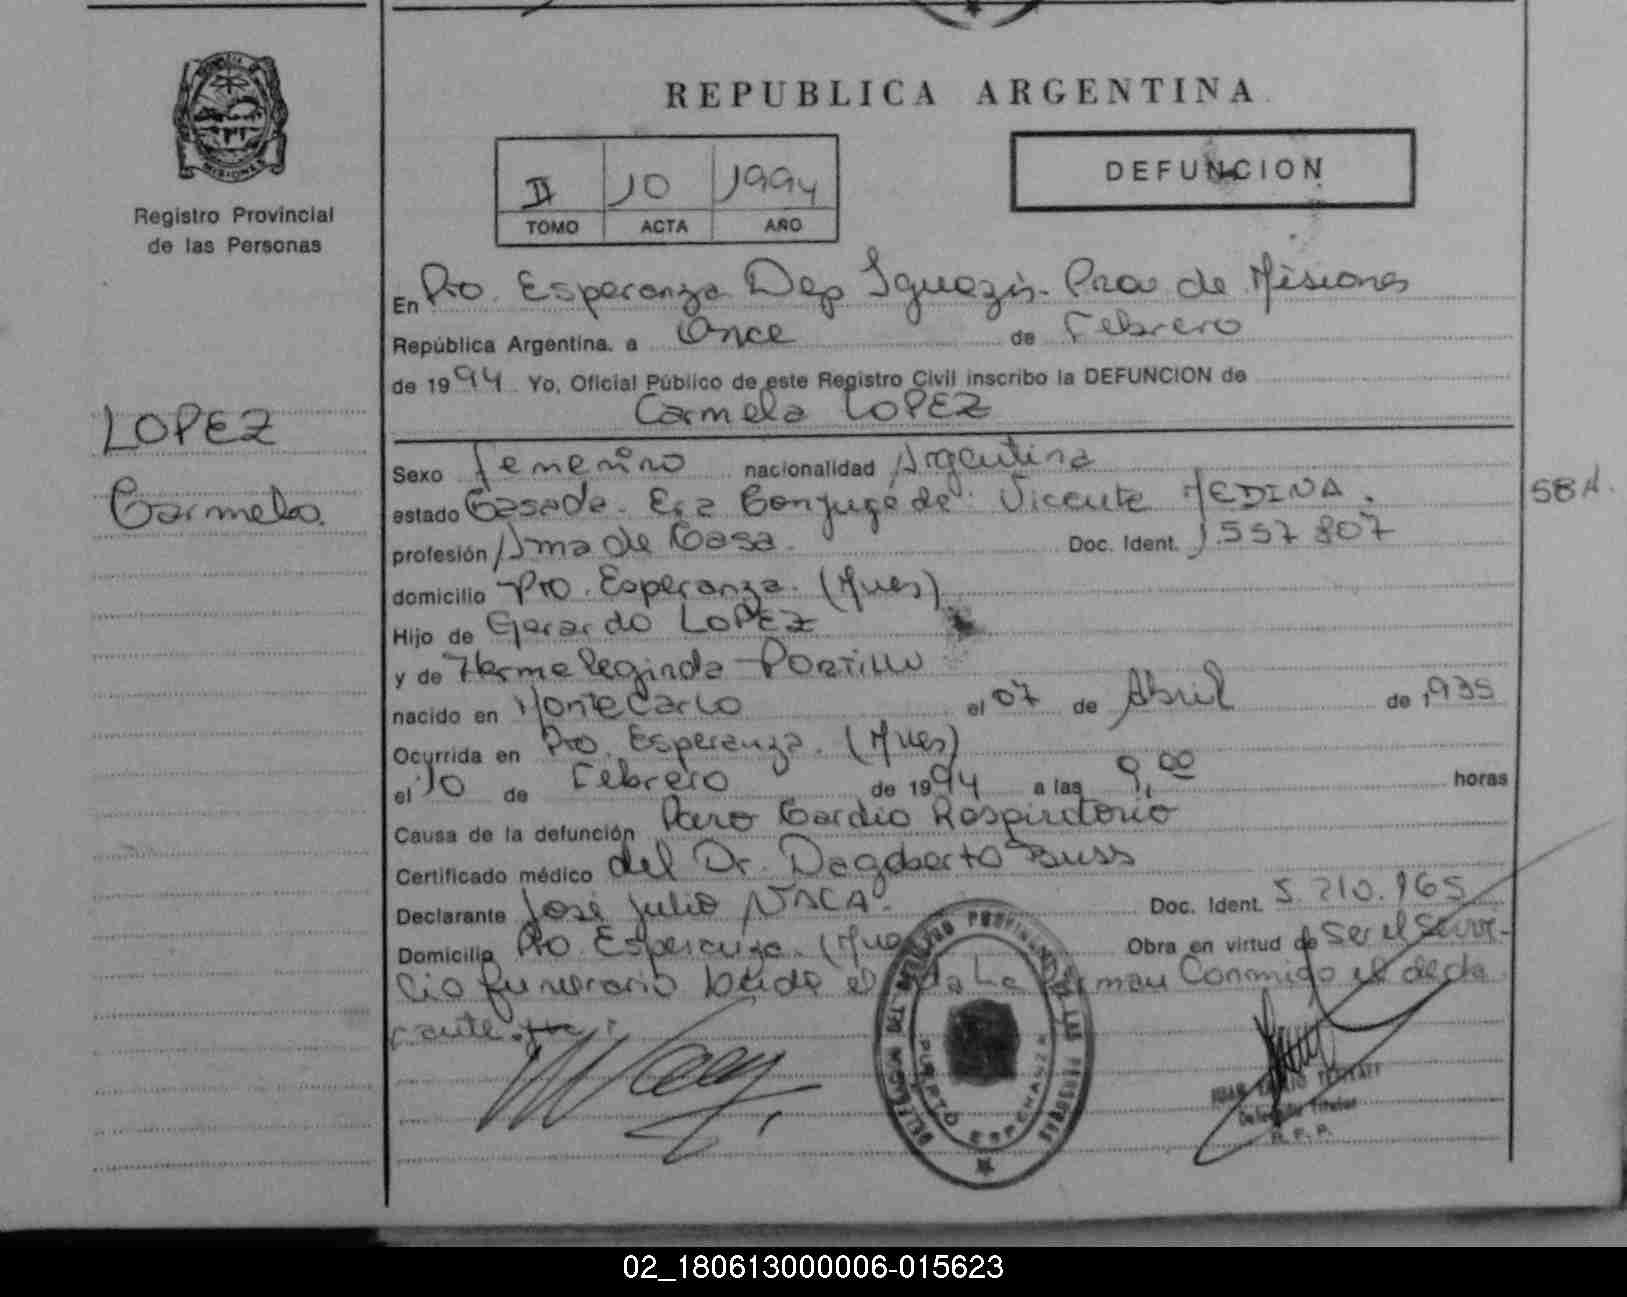 REPUBLICA ARGENTINA
MISIONES
Registro Provincial
de las Personas
II 10 1994
TOMO ACTA AÑO
DEFUNCION
En Pto. Esperanza Dep Iguazú. Prov de Misiones
República Argentina. a Once de Febrero
de 1994 Yo, Oficial Público de este Registro Civil inscribo la DEFUNCION de
Carmela LOPEZ
LOPEZ
Carmela.
Sexo femenino nacionalidad Argentina
estado Casada. Era Conyuge de: Vicente MEDINA.
58A.
profesión Ama de Casa. Doc. Ident. 1.557 807
domicilio Pto. Esperanza. (Mnes)
Hijo de Gerardo LOPEZ
y de Hermeleginda PORTILLO
nacido en MONTECARLO el 07 de Abril de 1935
Ocurrida en Pto. Esperanza. (Mnes)
el 10 de Febrero de 1994 a las 9,00 horas
Causa de la defunción Paro Cardio Respiratorio
Certificado médico del Dr. Dagoberto Buss
Declarante José Julio VACA. Doc. Ident. 5.210.165
Domicilio Pto. Esperanza. Obra en virtud de ser el Servi-
cio funerario Leida el La firman Conmigo el decla
rante.
DELEGACION DEL REGISTRO PROVINCIAL DE LAS PERSONAS
PUERTO ESPERANZA
Delegado Titular
R. P. P.
02_180613000006-015623